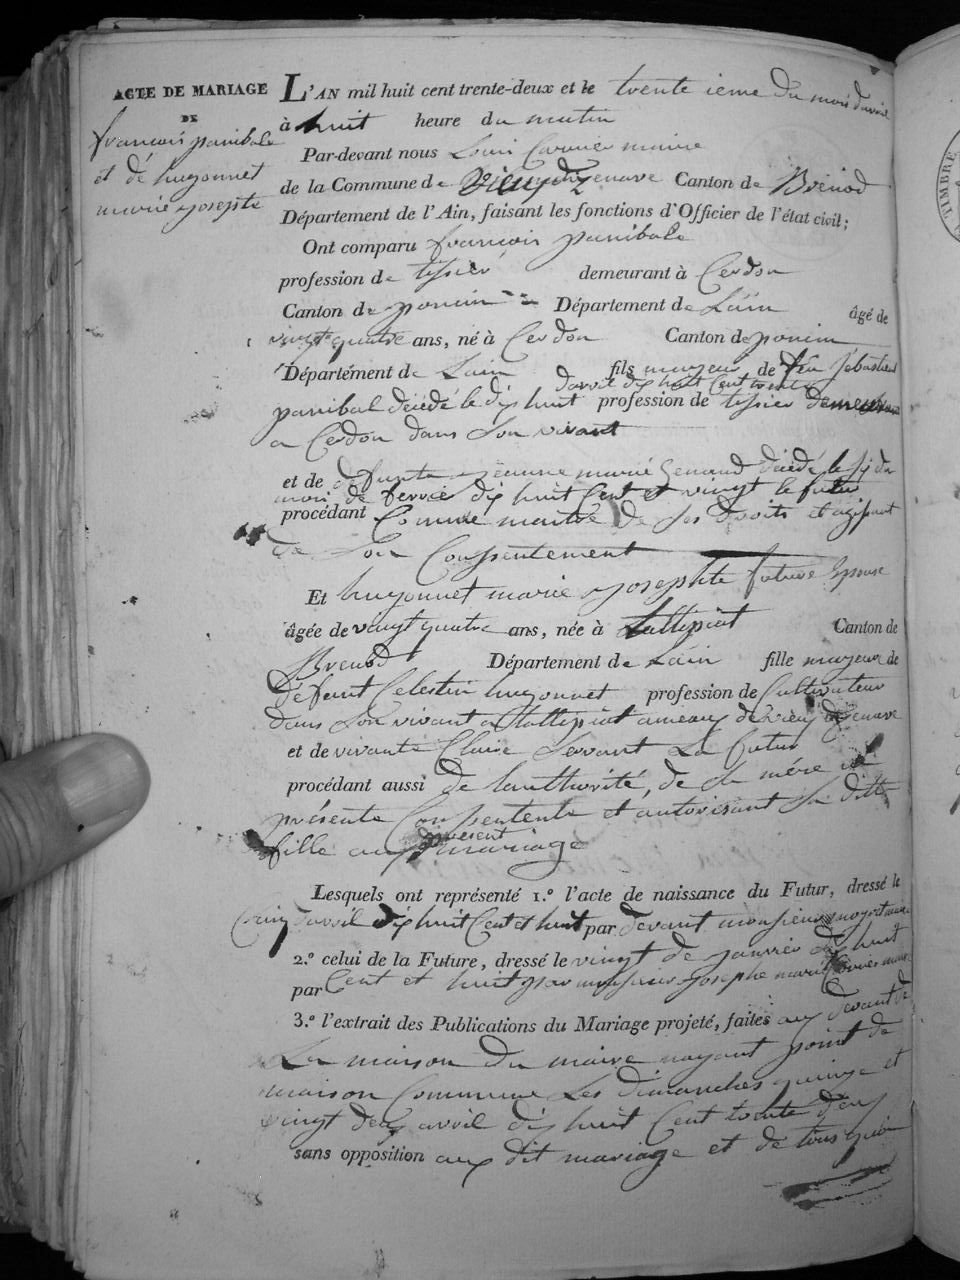 ACTE DE MARIAGE
DE
françois panibale
et dé huyonnet
marie josephte
L'AN mil huit cent trente-deux et le trente ieme du mois d'avril
à huit heure du matin
Par-devant nous Louis Carrier maire
de la Commune de Vieu d'izenave Canton de Brénod
Département de l'Ain, faisant les fonctions d'Officier de l'état civil;
Ont comparu françois panibale
profession de tissier demeurant à Cerdon
Canton de poncin Département de Lain âgé de
vingt quatre ans, né à Cerdon Canton de poncin
Département de Lain fils majeur de feu Sebastien
d'avril dix huit Cent trente
panibal décédé le dix huit profession de tissier demeurant
a Cerdon dans son vivant
et de défunte jeanne marie Genaud décédé le six du
mois de fevrié dix huit Cent et vingt le futur
procédant Comme maitre de ses droits et agissant
de son Conssentement
Et huyonnet marie josephte future Epouse
âgée de vaingt quatre ans, née à Tallipiat Canton de
Brenod Département de Lain fille majeur de
défunt Celestin huyonnet profession de Cultivateur
dans son vivant a tallipiat ameaux de vieu dizenave
et de vivante Claire Servant La futur
procédant aussi de lauthorité, de sa mére ici
présente Conssentente et autorisant sa ditte
fille aux present mariage
Lesquels ont représenté 1.º l'acte de naissance du Futur, dressé le
Cinq d'avril dix huit Cent et huit par devant monsieur moyret maire
2.º celui de la Future, dressé le vingt de janvier dix huit
par Cent et huit par monsieur josephe marie Carrier maire
3.º l'extrait des Publications du Mariage projeté, faites aux devant de
La maison du maire nayant point de
maison Commune Les dimanches quinze et
vingt deux avril dix huit Cent trente deux
sans opposition aux dit mariage et de tous quoi
TIMBRE